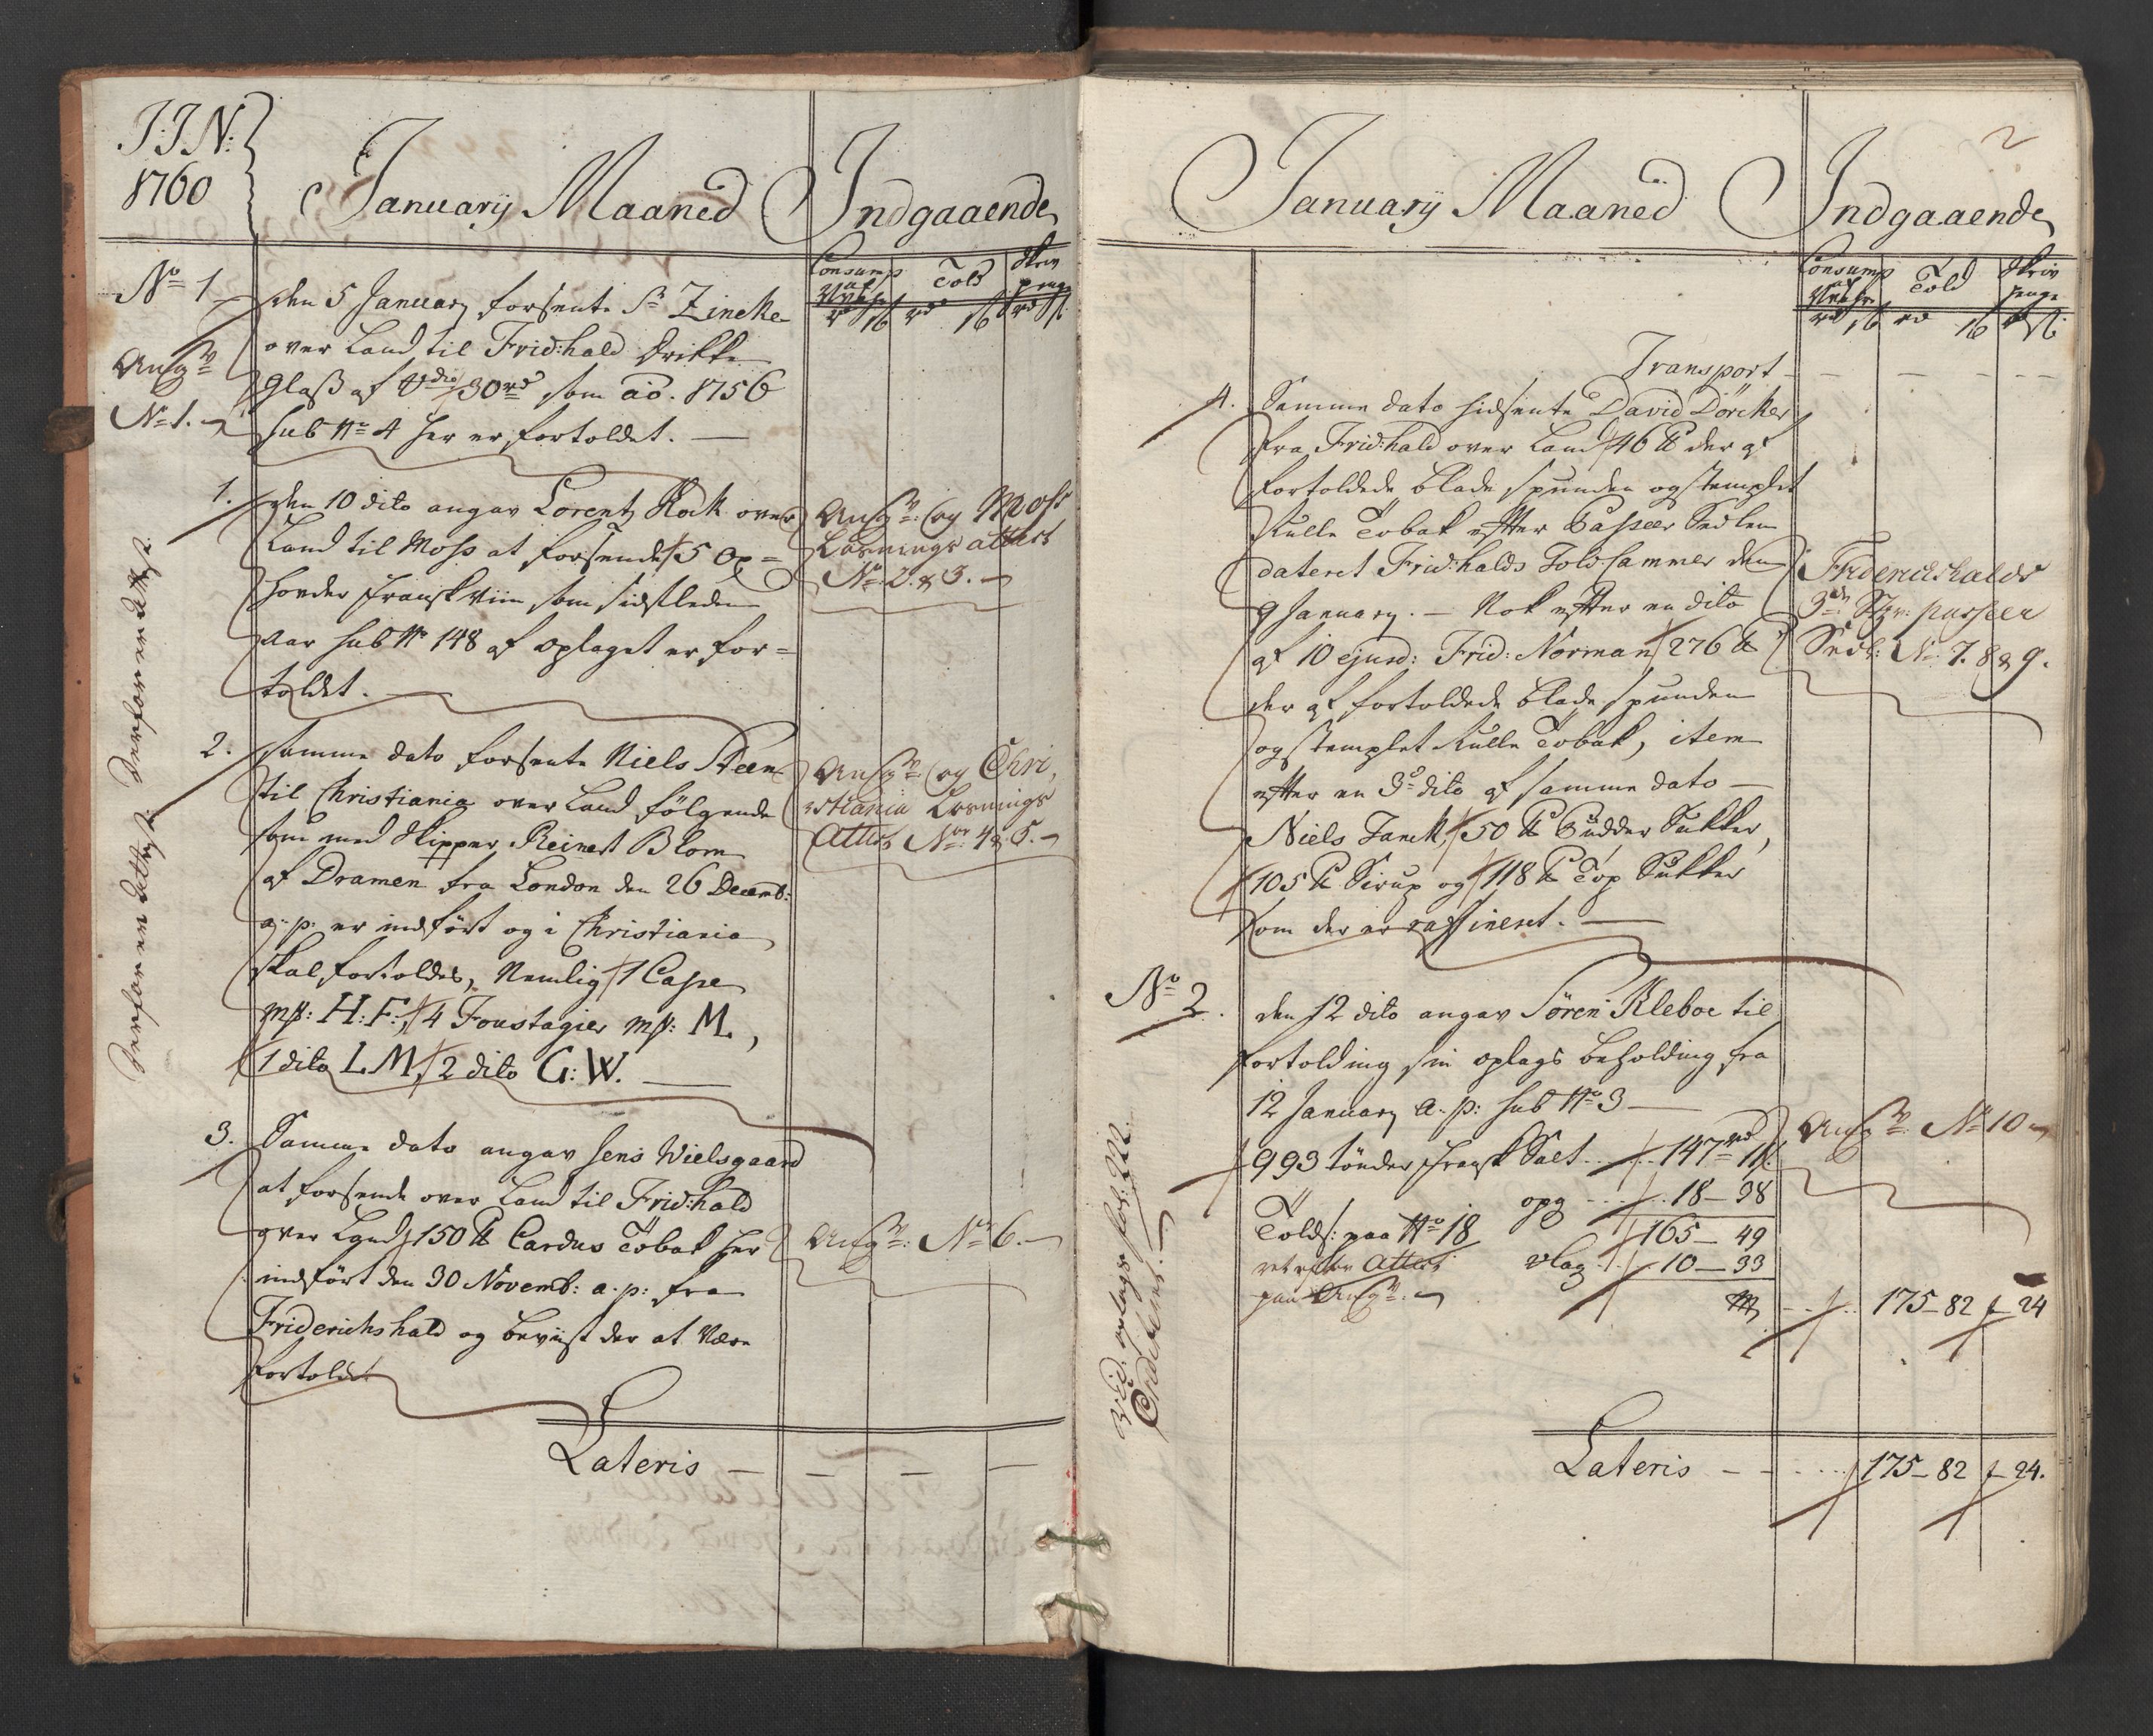 J: J: N:
1760
Januarij Maaned Indgaaende
Consump Told Skriv
penge
No 1
den 5 January forsente Sr Zincke
over Land til Frid:hald Drikke
Angr
Glaß af 30 rd som ao. 1756
No 1.
sub No 4 her er fortoldet. —
1. den 10 dito angav Lorentz Kock over
Land til Moss at forsende 5 Ox=
hoveder Fransk Viin som sidstleden
Aar sub No 148 af oplaget er for=
toldet. —
Ang: og Moss
Losnings attest
No 2 & 3.
2. Samme dato forsente Niels Steen
til Christiania over Land følgende
som med Skipper Reinert Blom
af Dramen fra London den 26 Decemb:
a. p: er indført og i Christiania
skal fortoldes, Nemlig 1 Casse
mk: H: F:, 4 Foustagier mk: M.,
1 dito L. M, 2 dito G: W. —
Ang: og Chri,
stiania Losnings
Attest No: 4 & 5.
3. Samme dato angav Jens Wielsgaard
at forsende over Land til Frid:hald
over Land 150 ℔ Cardus Tobak her
indført den 30 Novemb: a. p: fra
Friderichshald og beviist der at være
fortoldet
Ang: No 6.
Lateris — — — —
2
Januarij Maaned Indgaaende
Consump Told Skriv
penge
Transport — — — —
4. Samme dato hidsente David Dörcker
fra Frid:hald over Land 46 ℔ der af
fortoldede blade spunden og stemplet
Rulle Tobak efter Passeer Sedlen
dateret Frid:halds Toldkammer den
9 January. — Nok efter en dito
af 10 ejusd: Frid: Norman 276 ℔
der af fortoldede blade spunden
og stemplet Rulle Tobak, item
efter en 3de dito af samme dato —
Niels Tanck, 50 ℔ Pudder Sukker,
105 ℔ Sirup og 118 ℔ Top Sukker
som der er raffineret. —
Friderichshalds
3de passeer
Sedl: No: 7. 8 & 9.
No 2. den 12 dito angav Sören Kleboe til
fortolding sin oplags beholding fra
12 January a. p: sub No 3 —
993 tønder Fransk Salt 147 rd 11
opg 18 — 38
Tolds: paa No 18 165 — 49
Attest 10 — 33
175 — 82 24
Ang: No 10
Lateris — — 175 — 82 24.